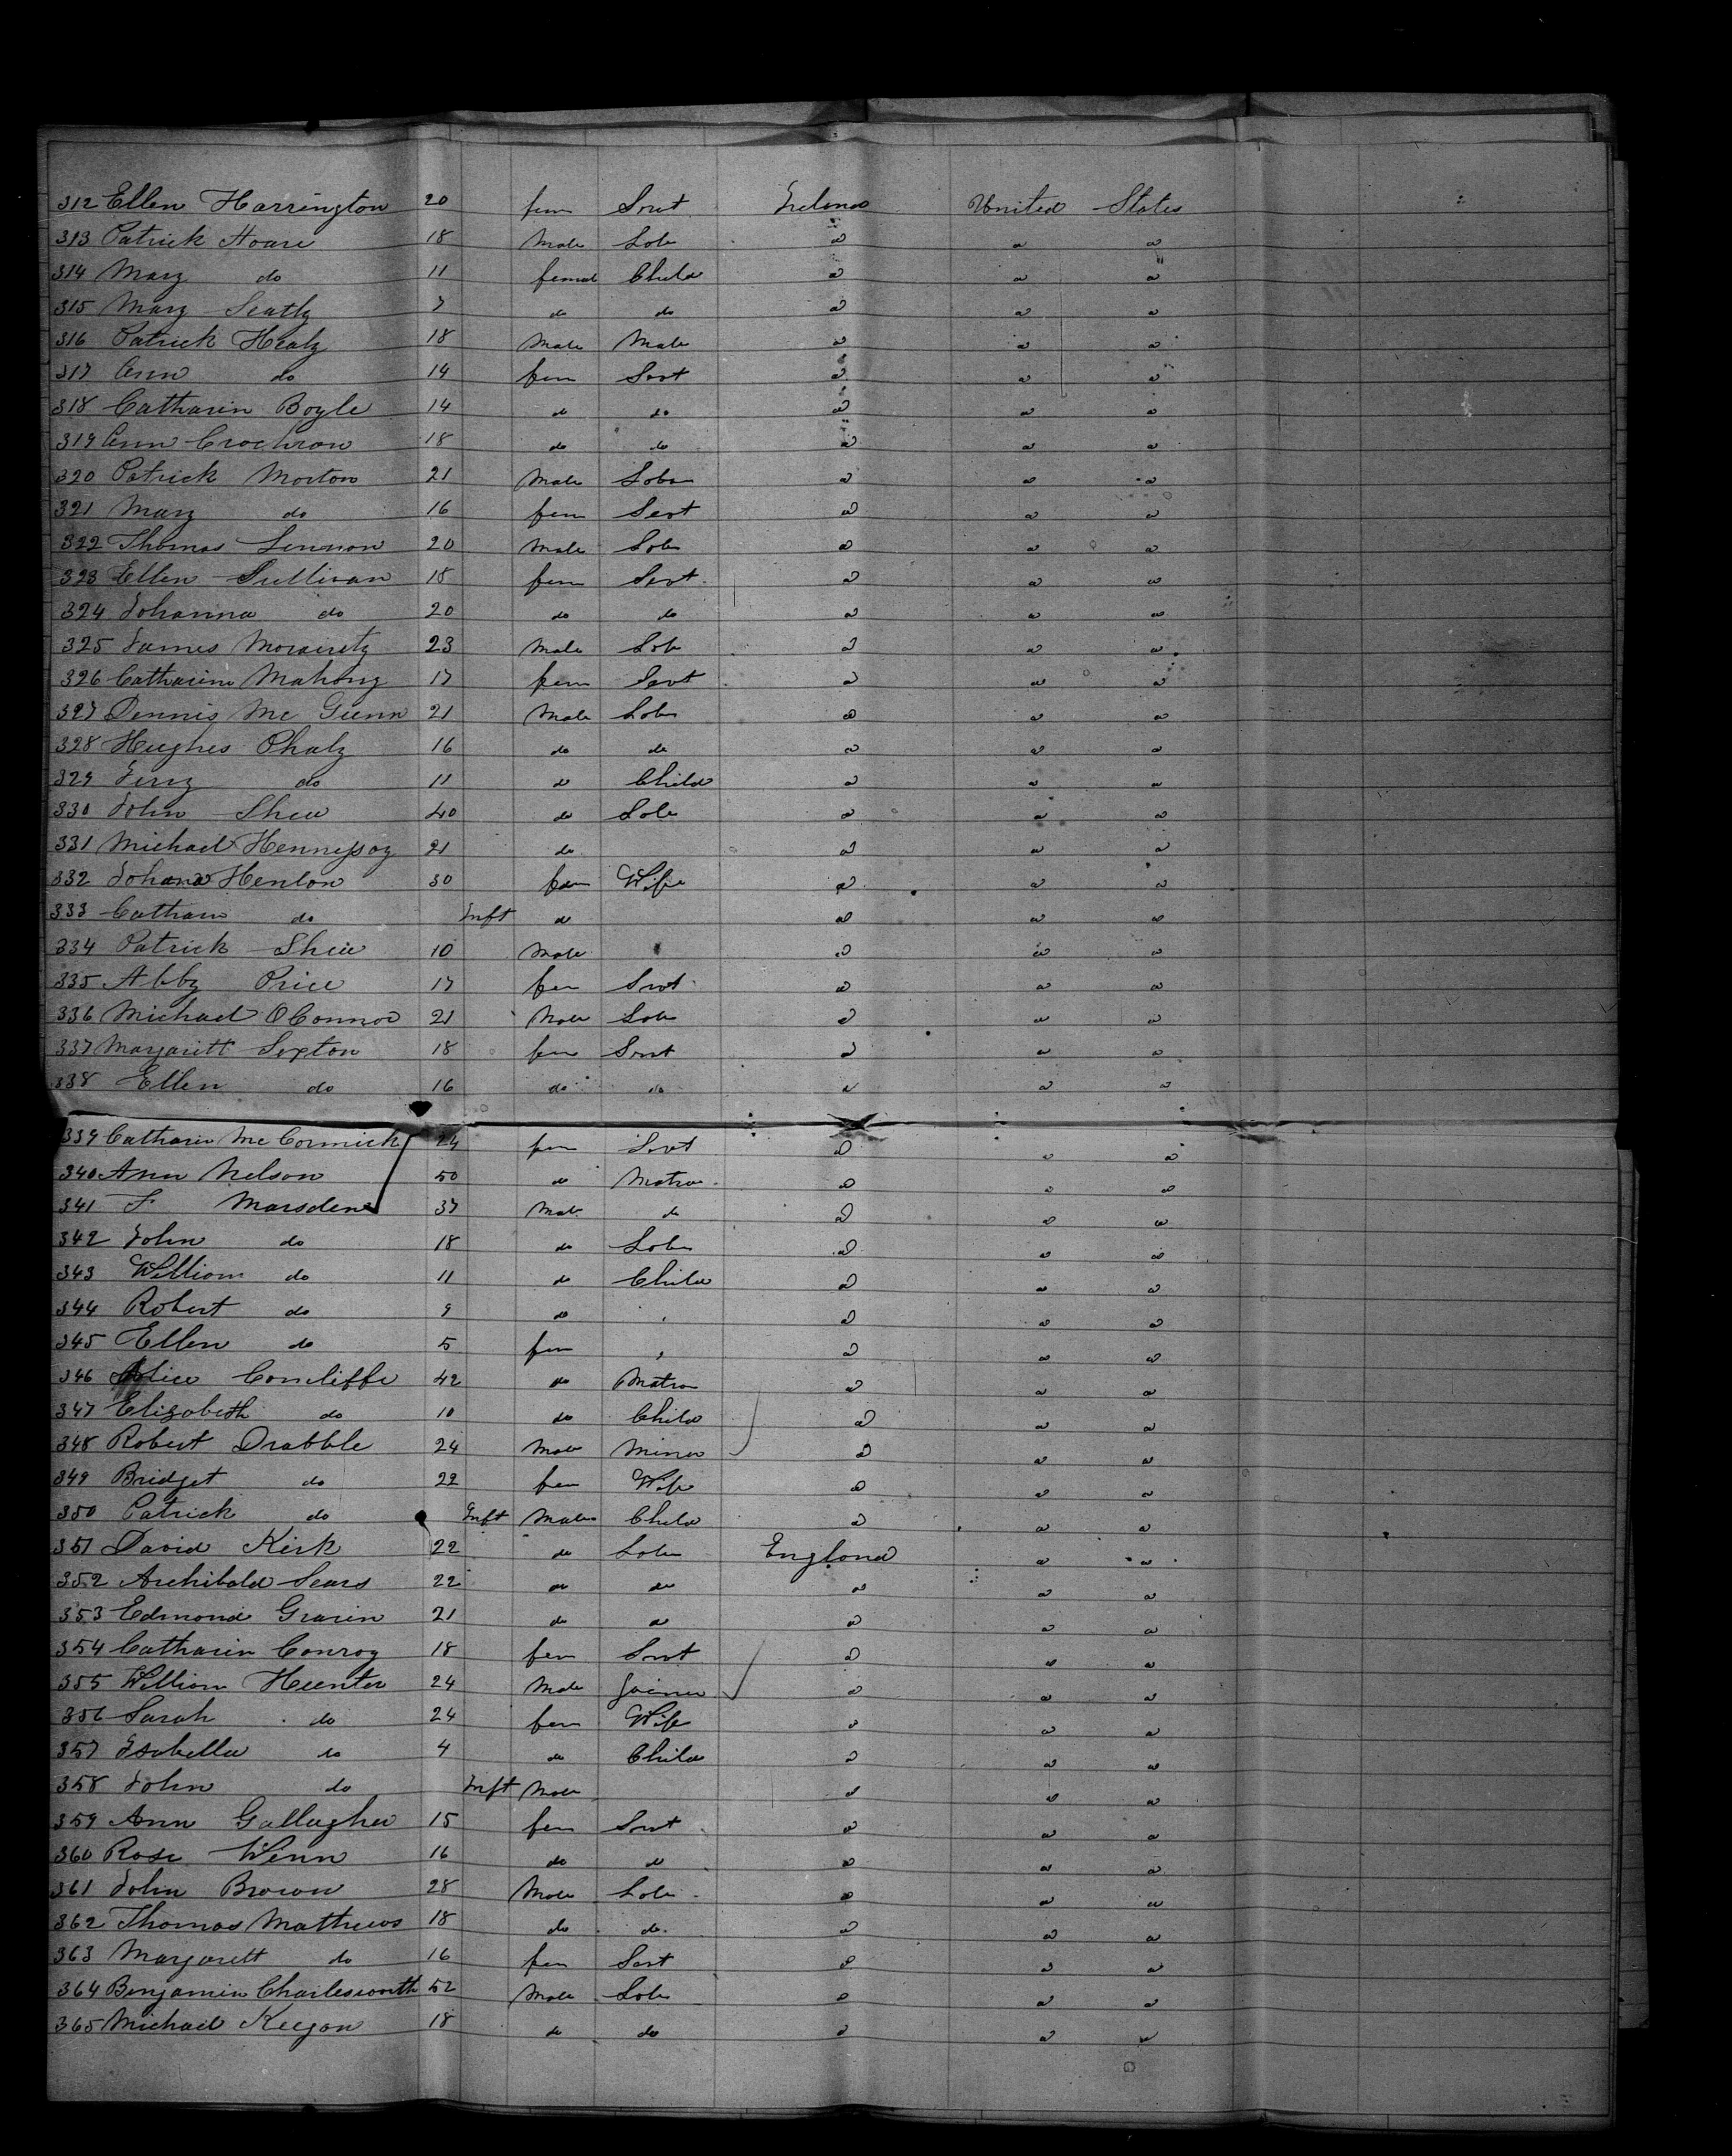 312 Ellen Harrington 20 fem Srvt Ireland United States
313 Patrick Hoare 18 Male Lab " " "
314 Mary do 11 femal Child " " "
315 Mary Seatty 7 do do " " "
316 Patrick Healy 18 Male Male " " "
317 Ann do 14 fem Servt " " "
318 Catharin Boyle 14 do do " " "
319 Ann Crochran 18 do do " " "
320 Patrick Morton 21 Male Labr " " "
321 Mary do 16 fem Servt " " "
322 Thomas Lennon 20 Male Labr " " "
323 Ellen Sullivan 18 fem Servt " " "
324 Johanna do 20 do do " " "
325 James Morairety 23 Male Lab " " "
326 Catharine Mahony 17 fem Servt " " "
327 Dennis Mc Gunn 21 Male Labr " " "
328 Hughes Phaly 16 do do " " "
329 Jerry do 11 do Child " " "
330 John Shea 40 do Lab " " "
331 Michael Hennessoy 21 do " " "
332 Johana Henlon 30 fem Wife " " "
333 Catharn do Inft do " " "
334 Patrick Shea 10 Male " " "
335 Abby Price 17 fem Srvt " " "
336 Michael OConnor 21 Male Labr " " "
337 Margarett Sexton 18 fem Srvt " " "
338 Ellen do 16 do do " " "
339 Catharin Mc Cormick 24 fem Srvt " " "
340 Ann Nelson 50 do Matron " " "
341 F Marsden 37 Male do " " "
342 John do 18 do Labr " " "
343 William do 11 do Child " " "
344 Robert do 9 do " " " "
345 Ellen do 5 fem " " " "
346 Alice Concliffe 42 do Matron " " "
347 Elizabeth do 10 do Child " " "
348 Robert Drabble 24 Male Miner " " "
349 Bridget do 22 fem Wife " " "
350 Patrick do Inft Male Child " " "
351 David Kirk 22 do Labr England " "
352 Archibald Sears 22 do do " " "
353 Edmond Gravin 21 do do " " "
354 Catharin Conroy 18 fem Srvt " " "
355 William Hunter 24 Male Joiner " " "
356 Sarah do 24 fem Wife " " "
357 Isabella do 4 do Child " " "
358 John do Inft Male " " "
359 Ann Gallagher 15 fem Srvt " " "
360 Rose Winn 16 do do " " "
361 John Brown 28 Male Labr " " "
362 Thomas Mathews 18 do do " " "
363 Margarett do 16 fem Servt " " "
364 Benjamin Charlesworth 52 Male Labr " " "
365 Michael Keegan 18 do do " " "